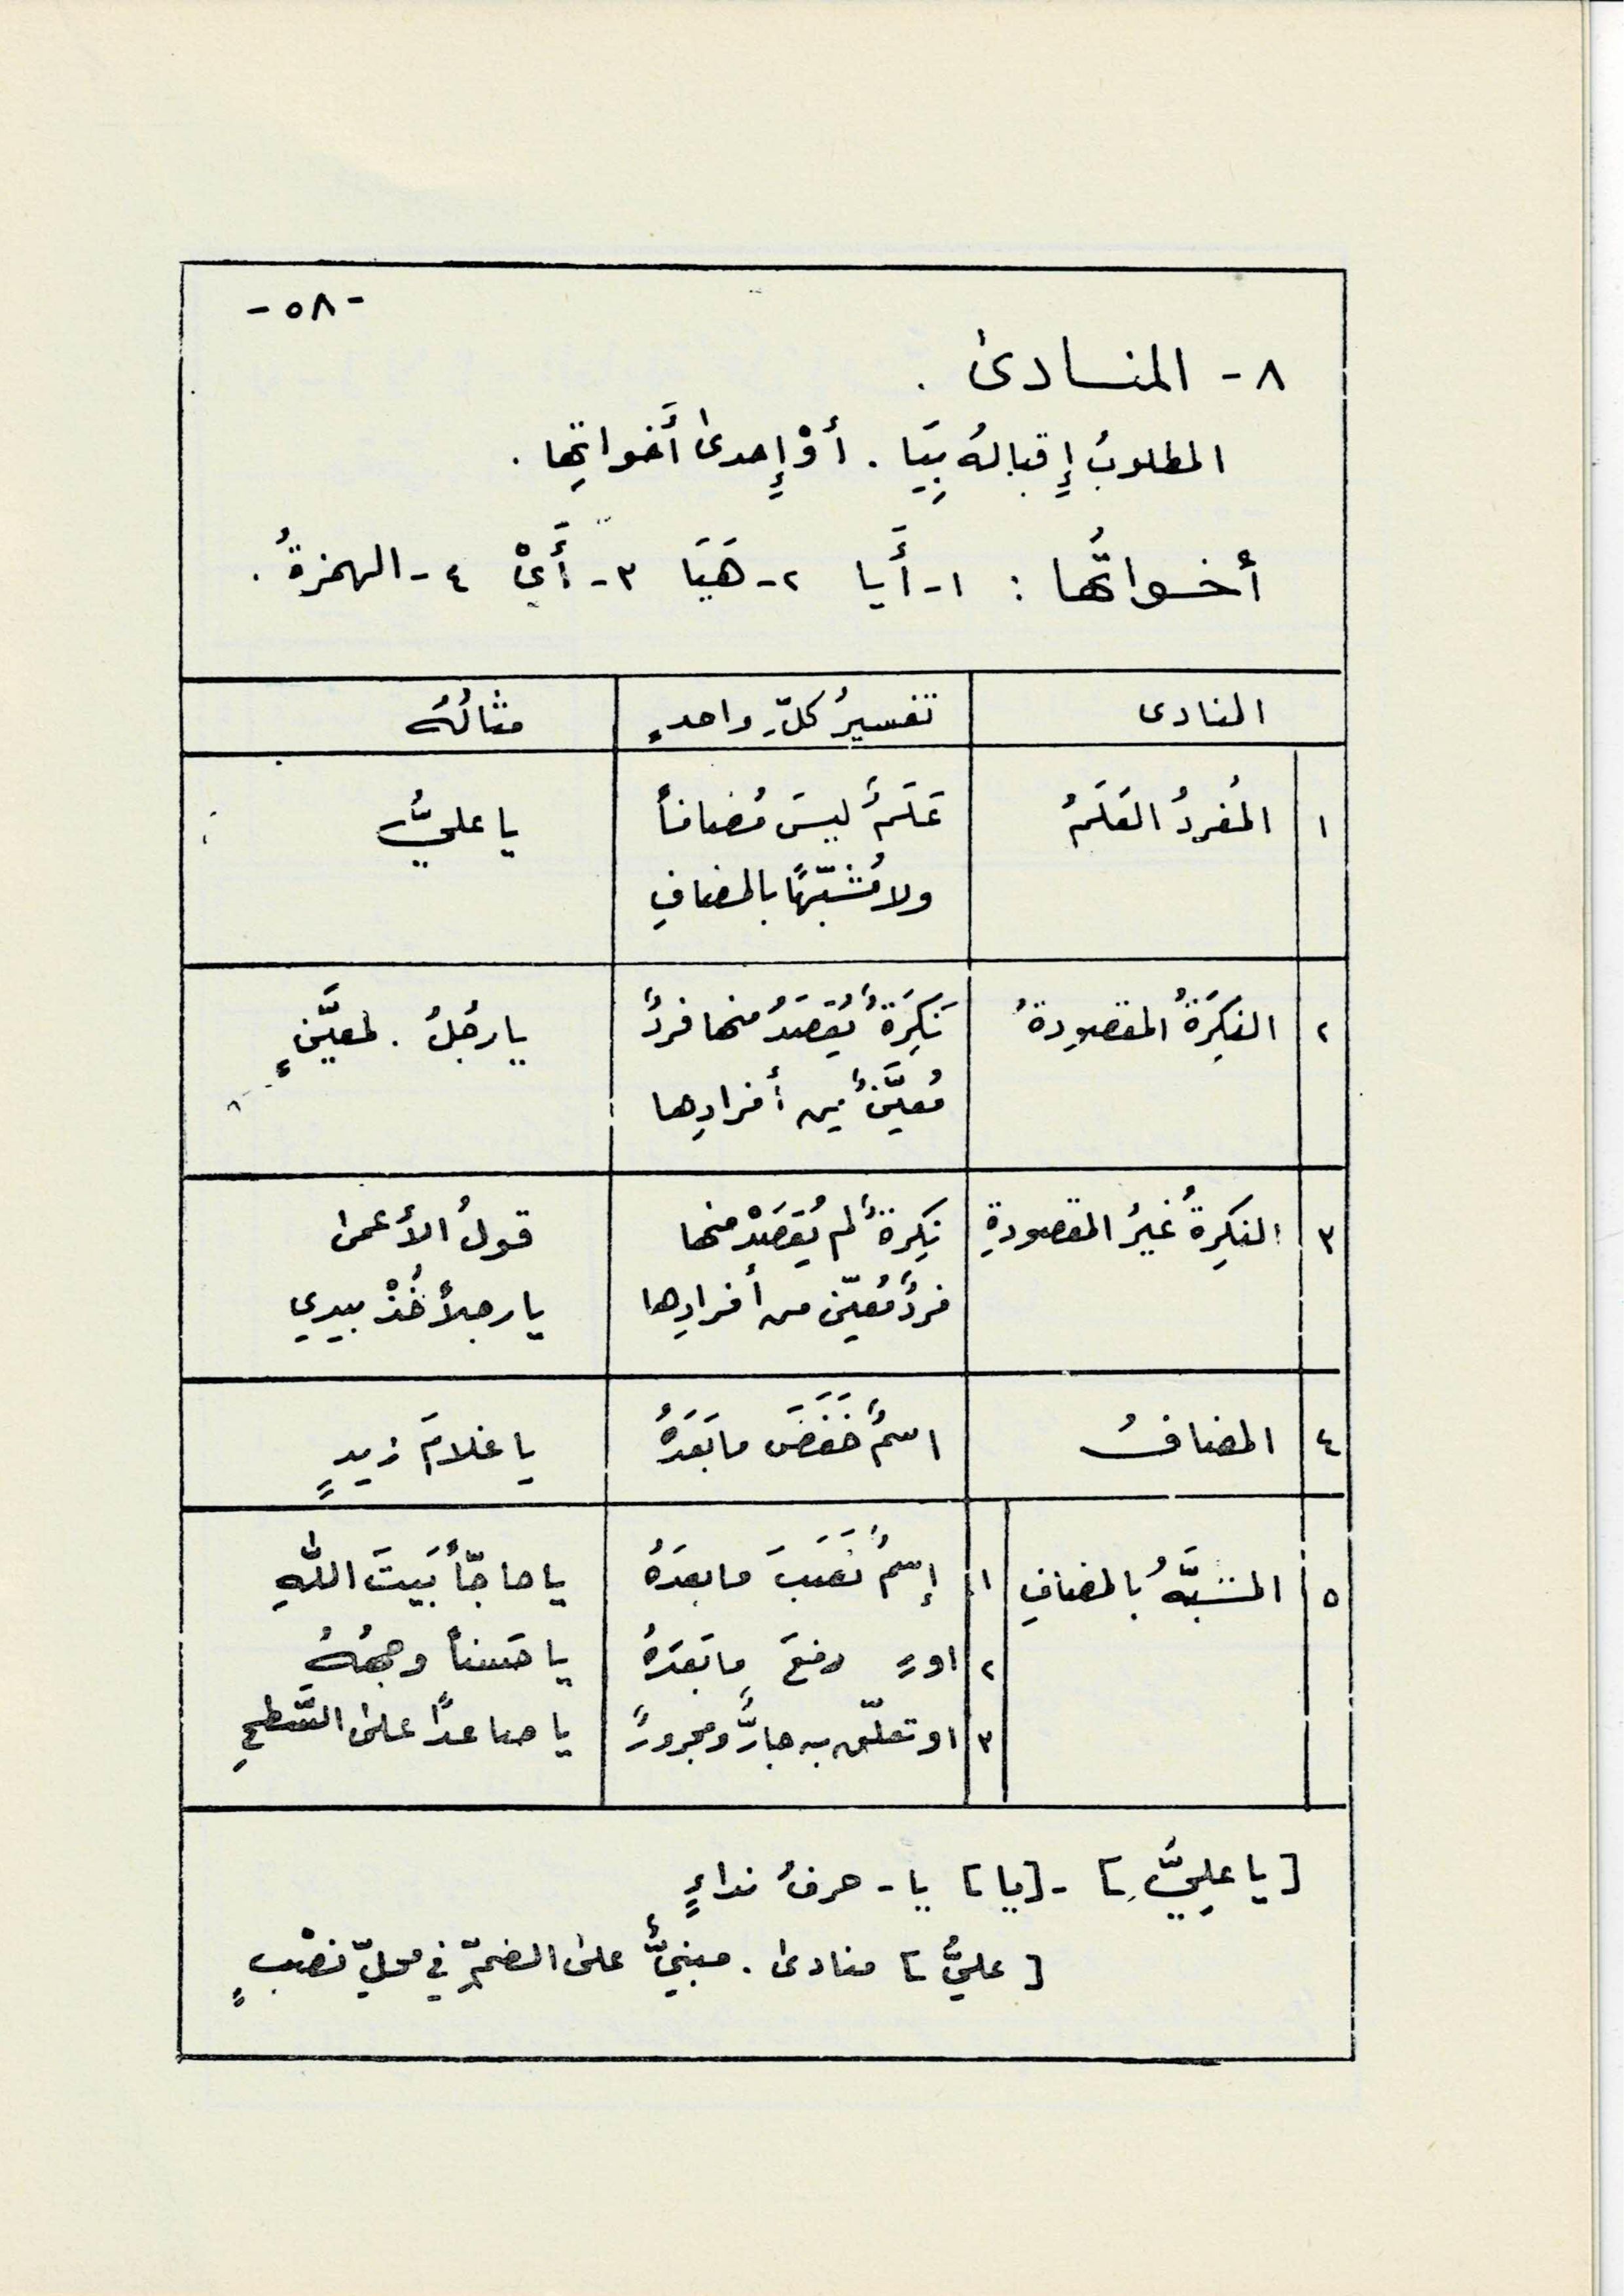 -٥٨-
٨- المنــادىٰ .
المطلوبُ إِقبالهُ بِيَا . أوْ إِحدىٰ أَخواتِها .
أخــواتُها : ١- أَيا ٢- هَيَا ٣- أَيْ ٤- الهمزةُ .
المنادى تفسيرُ كلِّ واحدٍ مثالُهُ
١ المُفردُ العَلَمُ عَلَمٌ ليسَ مُضافاً يا عليُّ
ولا مُشَبّهًا بالمضافِ
٢ النكِرَةُ المقصودةُ نَكِرَةٌ يُقصَدُ منها فردٌ يا رجُلُ . لمعيَّنٍ
مُعيَّنٌ مِن أفرادِها
٣ النكِرةُ غيرُ المقصودةِ نكِرةٌ لم يُقصَدْ منها قولُ الأعمىٰ
فردٌ مُعيّن من أفرادِها يا رجلاً خُذْ بيدي
٤ المضافُ اسمٌ خَفَضَ ما بَعَدَهُ يا غلامَ زيدٍ
٥ المشبَّهُ بالمضافِ ١ إسمٌ نَصَبَ ما بعدَهُ يا حاجّاً بَيتَ اللّٰهِ
٢ او رفعَ ما بَعَدَهُ يا حَسناً وجههُ
٣ او تعلّق به جارٌّ ومجرورٌ يا صاعدًا علىٰ السَّطحِ
[ يا عليُّ ] - [يا] يا - حرفُ نداءٍ
[ عليُّ ] منادىٰ . مبنيٌّ علىٰ الضمِّ في محلِّ نصْبٍ